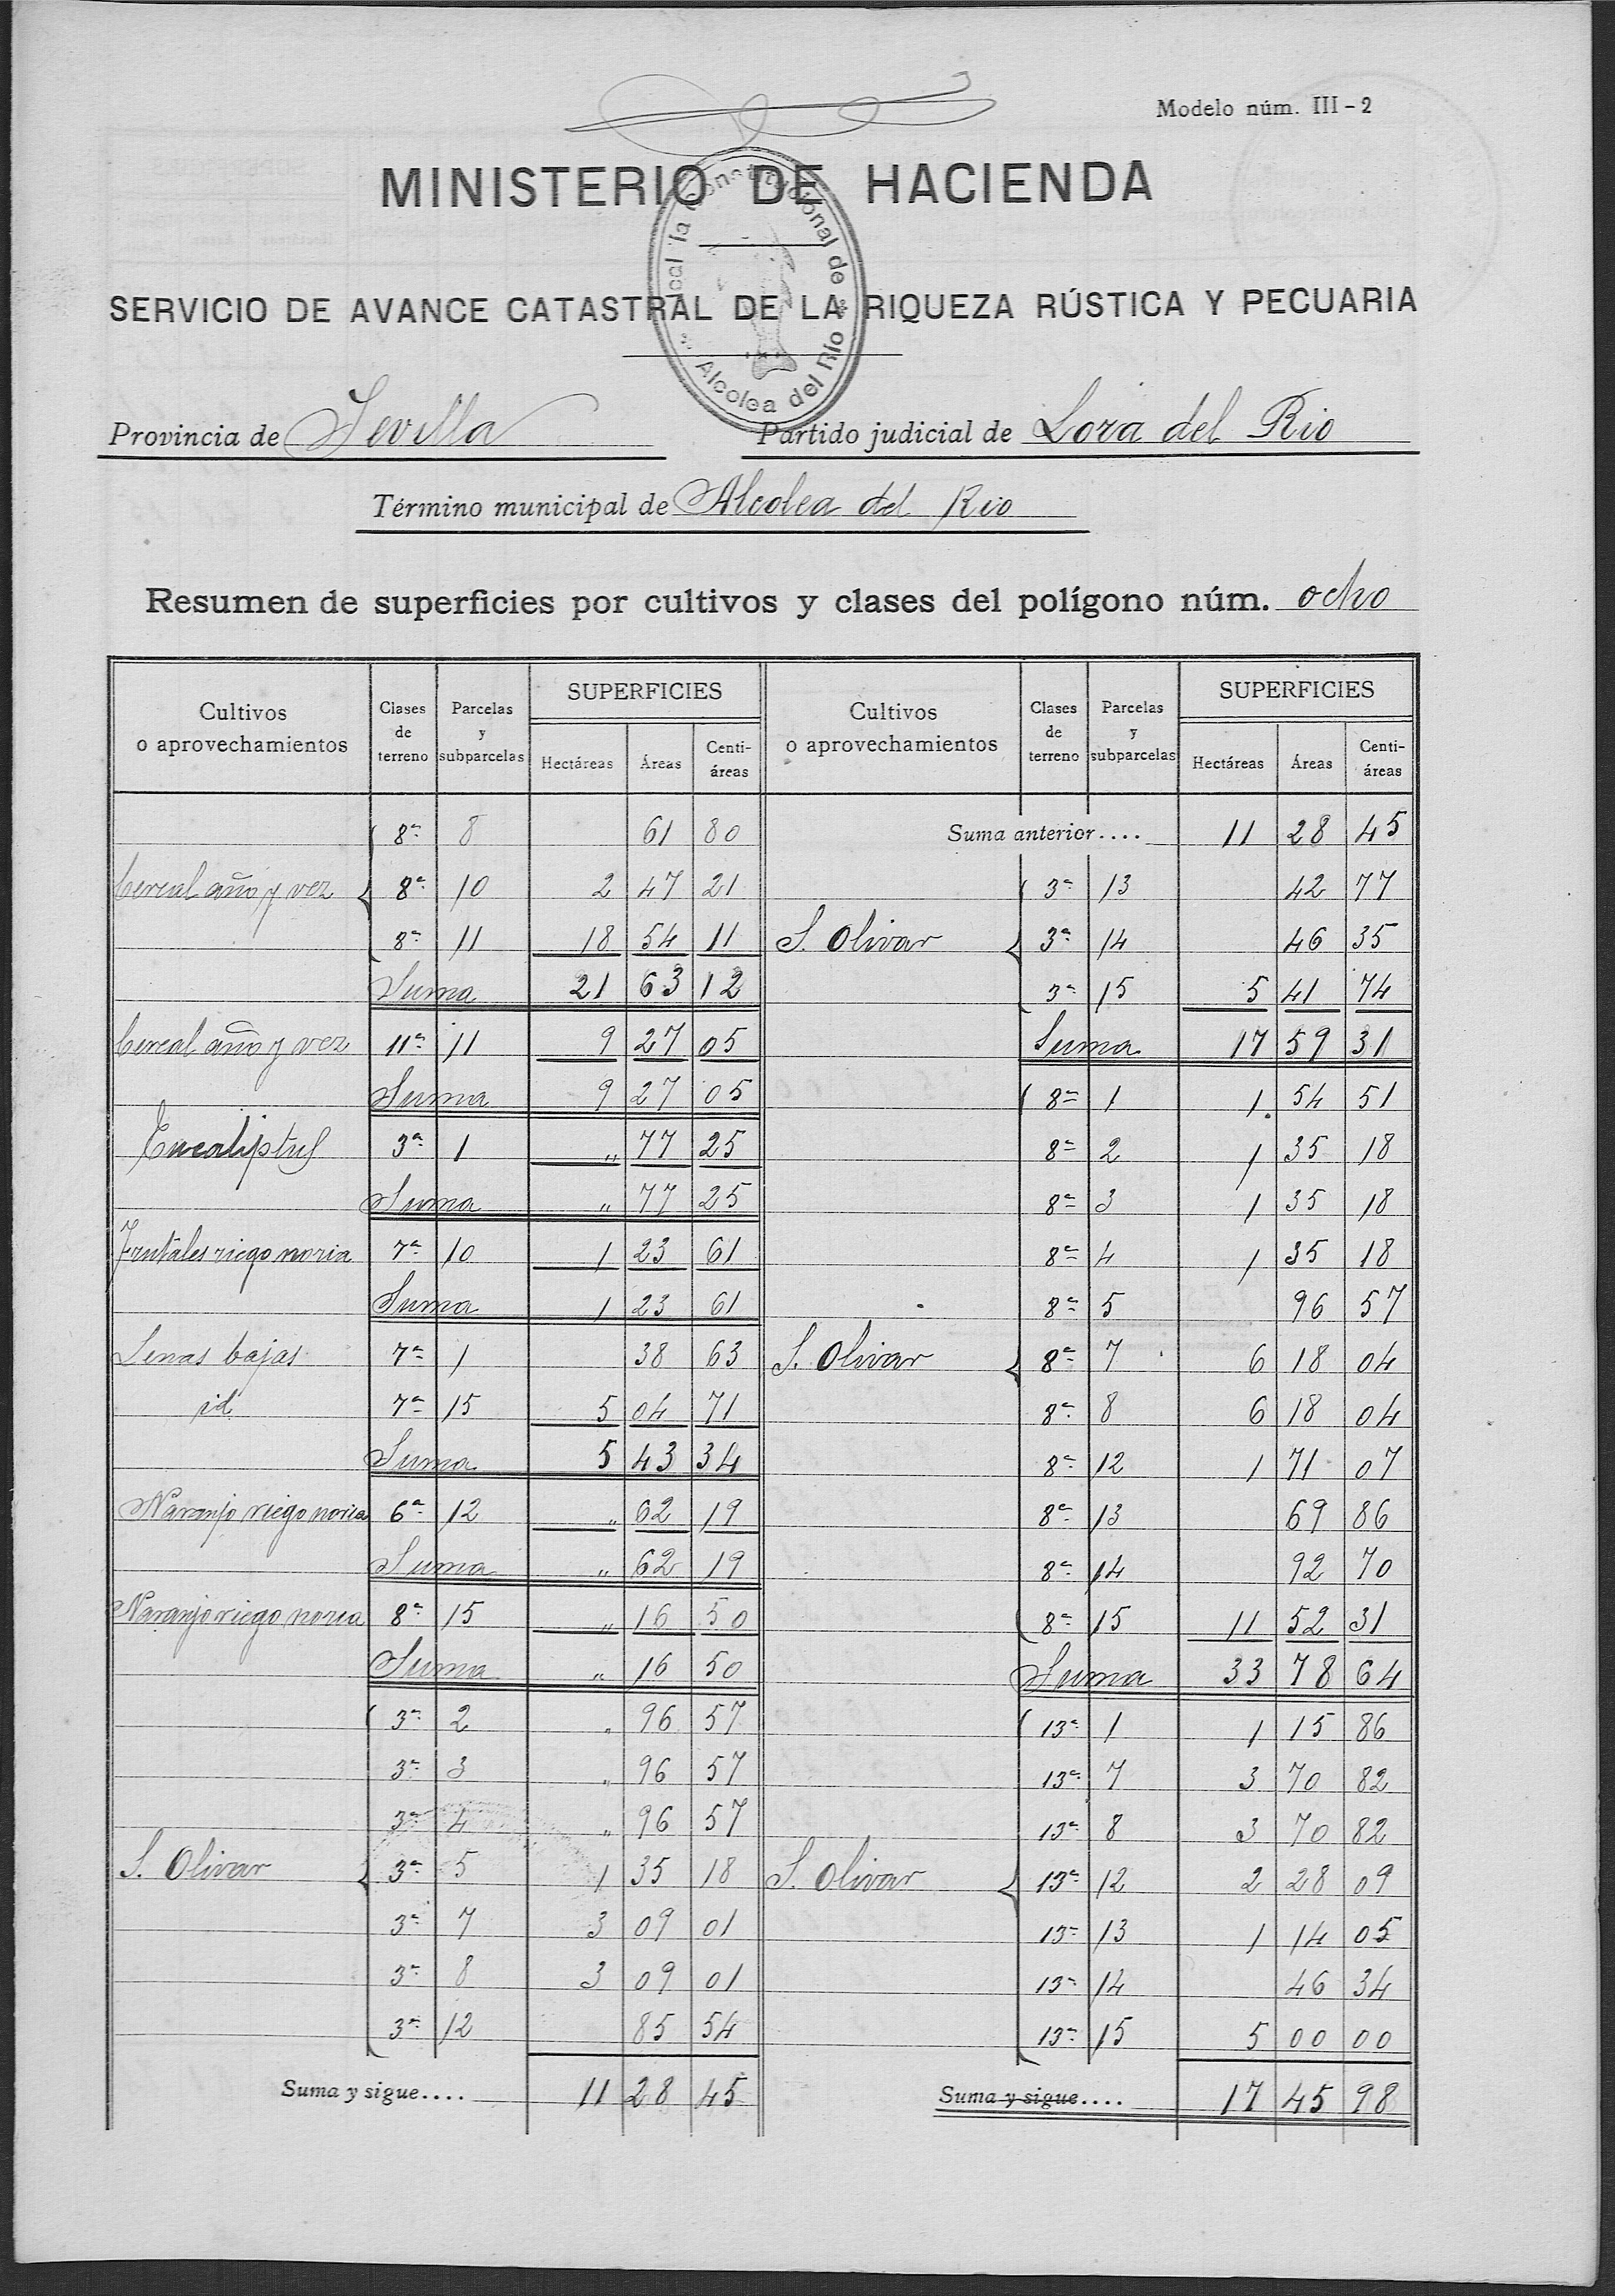 Modelo núm. III-2
MINISTERIO DE HACIENDA
SERVICIO DE AVANCE CATASTRAL DE LA RIQUEZA RÚSTICA Y PECUARIA
Constitucional de
Alcolea del Río
Provincia de Sevilla Partido judicial de Lora del Rio
Término municipal de Alcolea del Rio
Resumen de superficies por cultivos y clases del polígono núm. ocho
Cultivos o aprovechamientos Clases de terreno Parcelas y subparcelas SUPERFICIES Hectáreas Áreas Centiáreas
8ª 8 61 80
Cereal año y vez 8ª 10 2 47 21
8ª 11 18 54 11
Suma 21 63 12
Cereal año y vez 11ª 11 9 27 05
Suma 9 27 05
Eucaliptus 3ª 1 " 77 25
Suma " 77 25
Frutales riego noria 7ª 10 1 23 61
Suma 1 23 61
Lenas bajas 7ª 1 38 63
id 7ª 15 5 04 71
Suma 5 43 34
Naranjo riego noria 6ª 12 " 62 19
Suma " 62 19
Naranjo riego noria 8ª 15 " 16 50
Suma " 16 50
3ª 2 " 96 57
3ª 3 " 96 57
3ª 4 " 96 57
S. Olivar 3ª 5 1 35 18
3ª 7 3 09 01
3ª 8 3 09 01
3ª 12 85 54
Suma y sigue.... 11 28 45
Cultivos o aprovechamientos Clases de terreno Parcelas y subparcelas SUPERFICIES Hectáreas Áreas Centiáreas
Suma anterior.... 11 28 45
3ª 13 42 77
S. Olivar 3ª 14 46 35
3ª 15 5 41 74
Suma 17 59 31
8ª 1 1 54 51
8ª 2 1 35 18
8ª 3 1 35 18
8ª 4 1 35 18
8ª 5 96 57
S. Olivar 8ª 7 6 18 04
8ª 8 6 18 04
8ª 12 1 71 07
8ª 13 69 86
8ª 14 92 70
8ª 15 11 52 31
Suma 33 78 64
13ª 1 1 15 86
13ª 7 3 70 82
13ª 8 3 70 82
S. Olivar 13ª 12 2 28 09
13ª 13 1 14 05
13ª 14 46 34
13ª 15 5 00 00
Suma y sigue.... 17 45 98